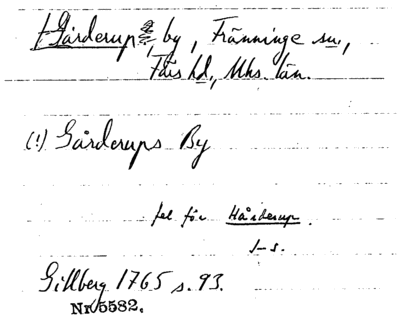 † Gårderup, by, Tränninge sn.,
Färs hd, Mhs. län.
(!) Gårderups By
fel för Hårderup.
J-s.
Gillberg 1765 s. 93.
Nr 5582.